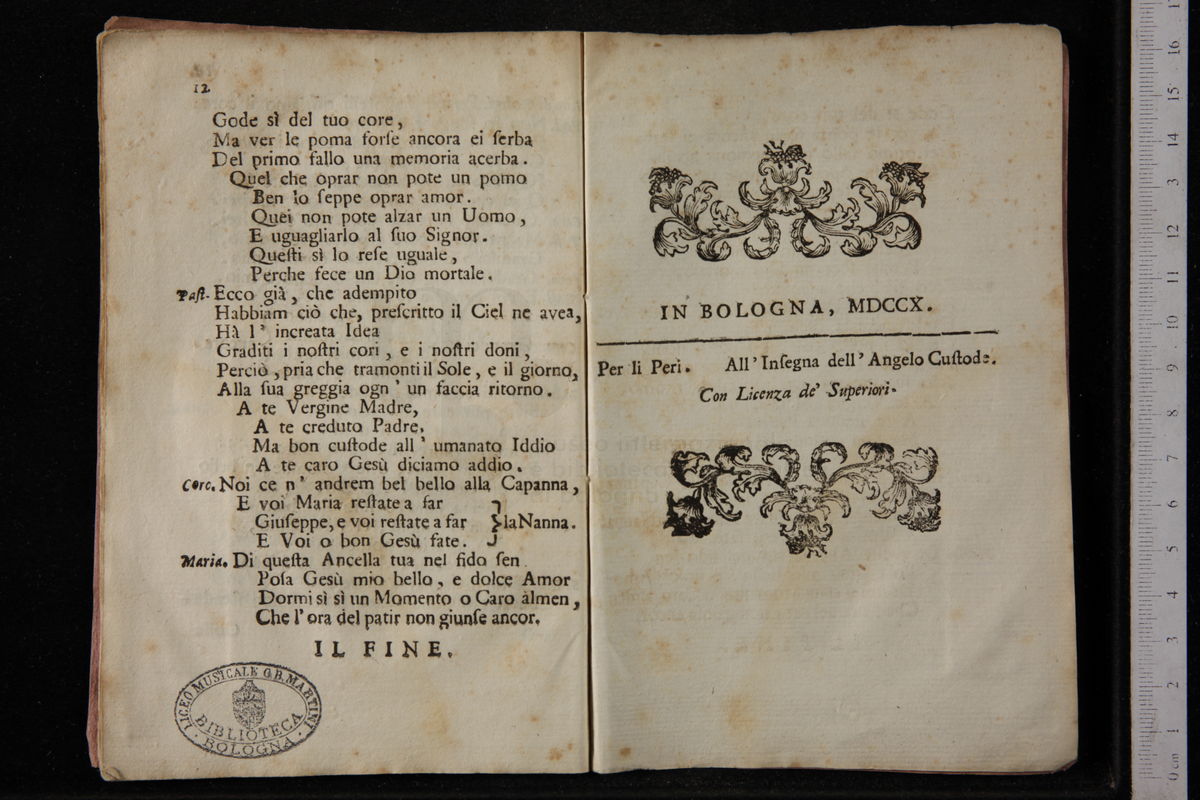 12.
Gode sì del tuo core,
Ma ver le poma forſe ancora ei ſerba
Del primo fallo una memoria acerba.
Quel che oprar non pote un pomo
Ben lo ſeppe oprar amor.
Quei non pote alzar un Uomo,
E uguagliarlo al ſuo Signor.
Queſti sì lo reſe uguale,
Perche fece un Dio mortale.
Paſt. Ecco già, che adempito
Habbiam ciò che, preſcritto il Ciel ne avea,
Hà l' increata Idea
Graditi i noſtri cori, e i noſtri doni,
Perciò, pria che tramonti il Sole, e il giorno,
Alla ſua greggia ogn' un faccia ritorno.
A te Vergine Madre,
A te creduto Padre,
Ma bon cuſtode all' umanato Iddio
A te caro Gesù diciamo addio.
Coro. Noi ce n' andrem bel bello alla Capanna,
E voi Maria reſtate a far
Giuſeppe, e voi reſtate a far } la Nanna.
E Voi o bon Gesù fate.
Maria. Di queſta Ancella tua nel fido ſen
Poſa Gesù mio bello, e dolce Amor
Dormi sì sì un Momento o Caro àlmen,
Che l'ora del patir non giunſe ancor.
IL FINE.
LICEO MUSICALE G.B. MARTINI
BIBLIOTECA
BOLOGNA
IN BOLOGNA, MDCCX.
Per li Peri. All' Inſegna dell' Angelo Cuſtode.
Con Licenza de' Superiori.
17
16
15
14
3
12
11
10
9
8
7
6
5
4
3
2
1
0 cm